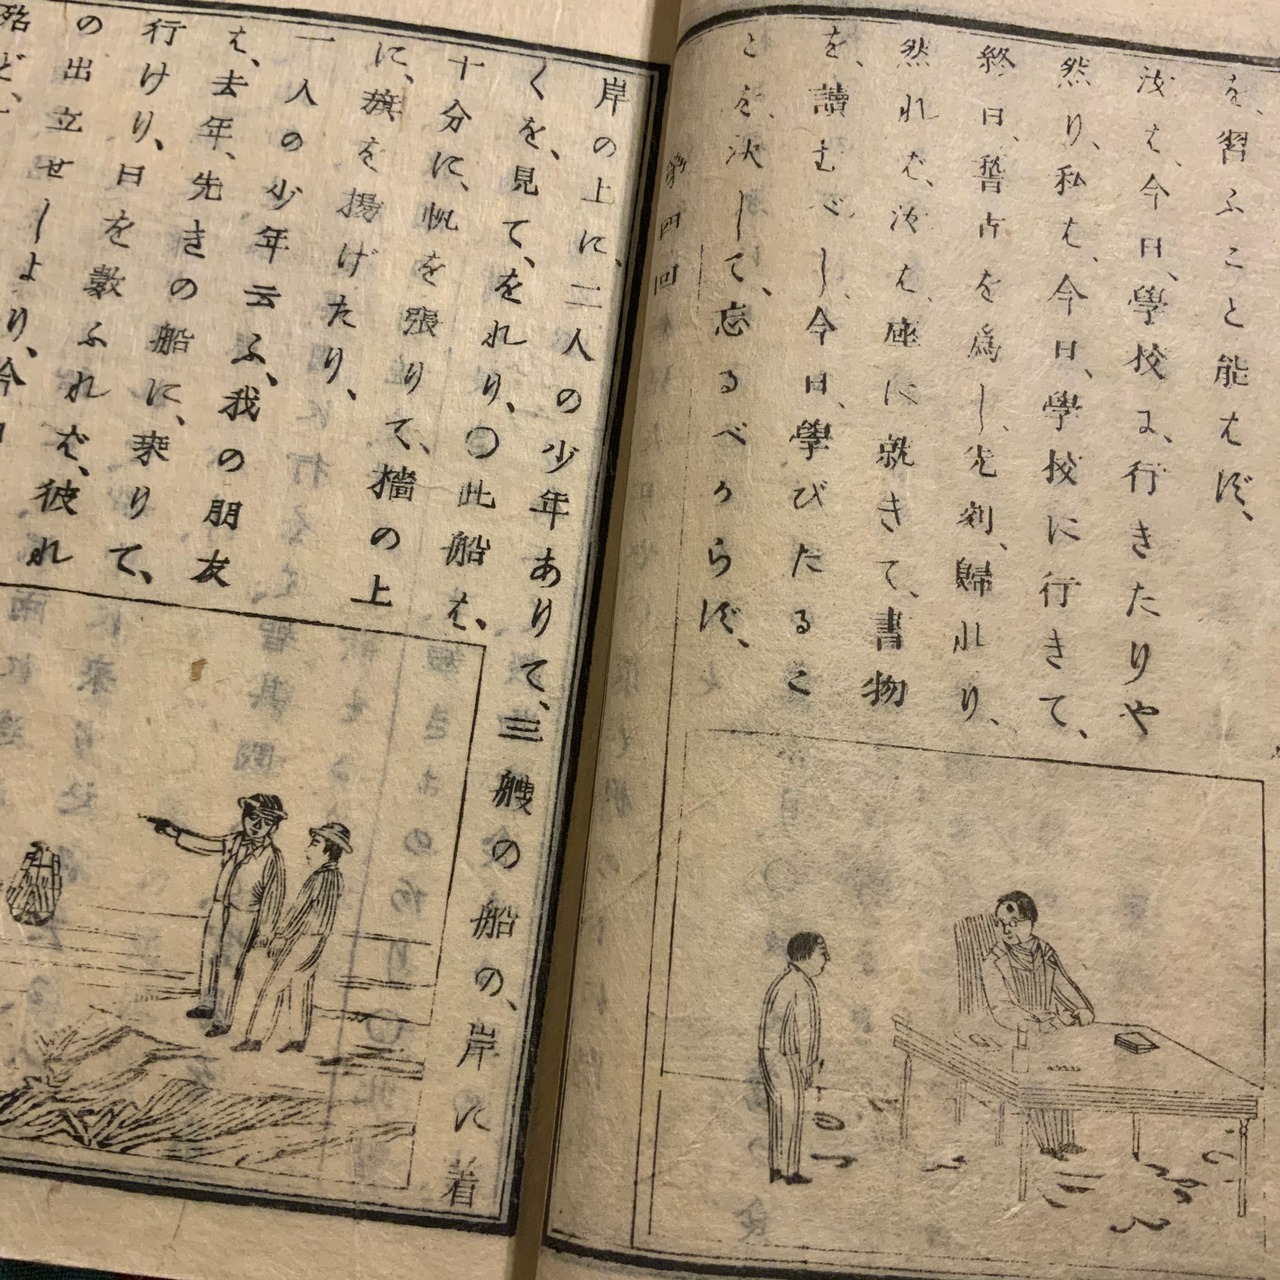 を、習ふこと能はず、
汝は、今日、學校に、行きたりや
然り、私は、今日、學校に行きて、
終日、稽古を爲し、先刻、歸れり、
然れば、汝は、座に就きて、書物
を、讀むべし、今日、學びたるこ
とを、決して、忘るべからず、
第四回
岸の上に、二人の少年ありて、三艘の船の、岸に着
くを、見て、をれり、〇此船は、
十分に、帆を張りて、檣の上
に、旗を揚げたり、
一人の少年云ふ、我の朋友
は、去年、先きの船に、乘りて、
行けり、日を數ふれば、彼れ
の出立せしより、今日
殆ど、